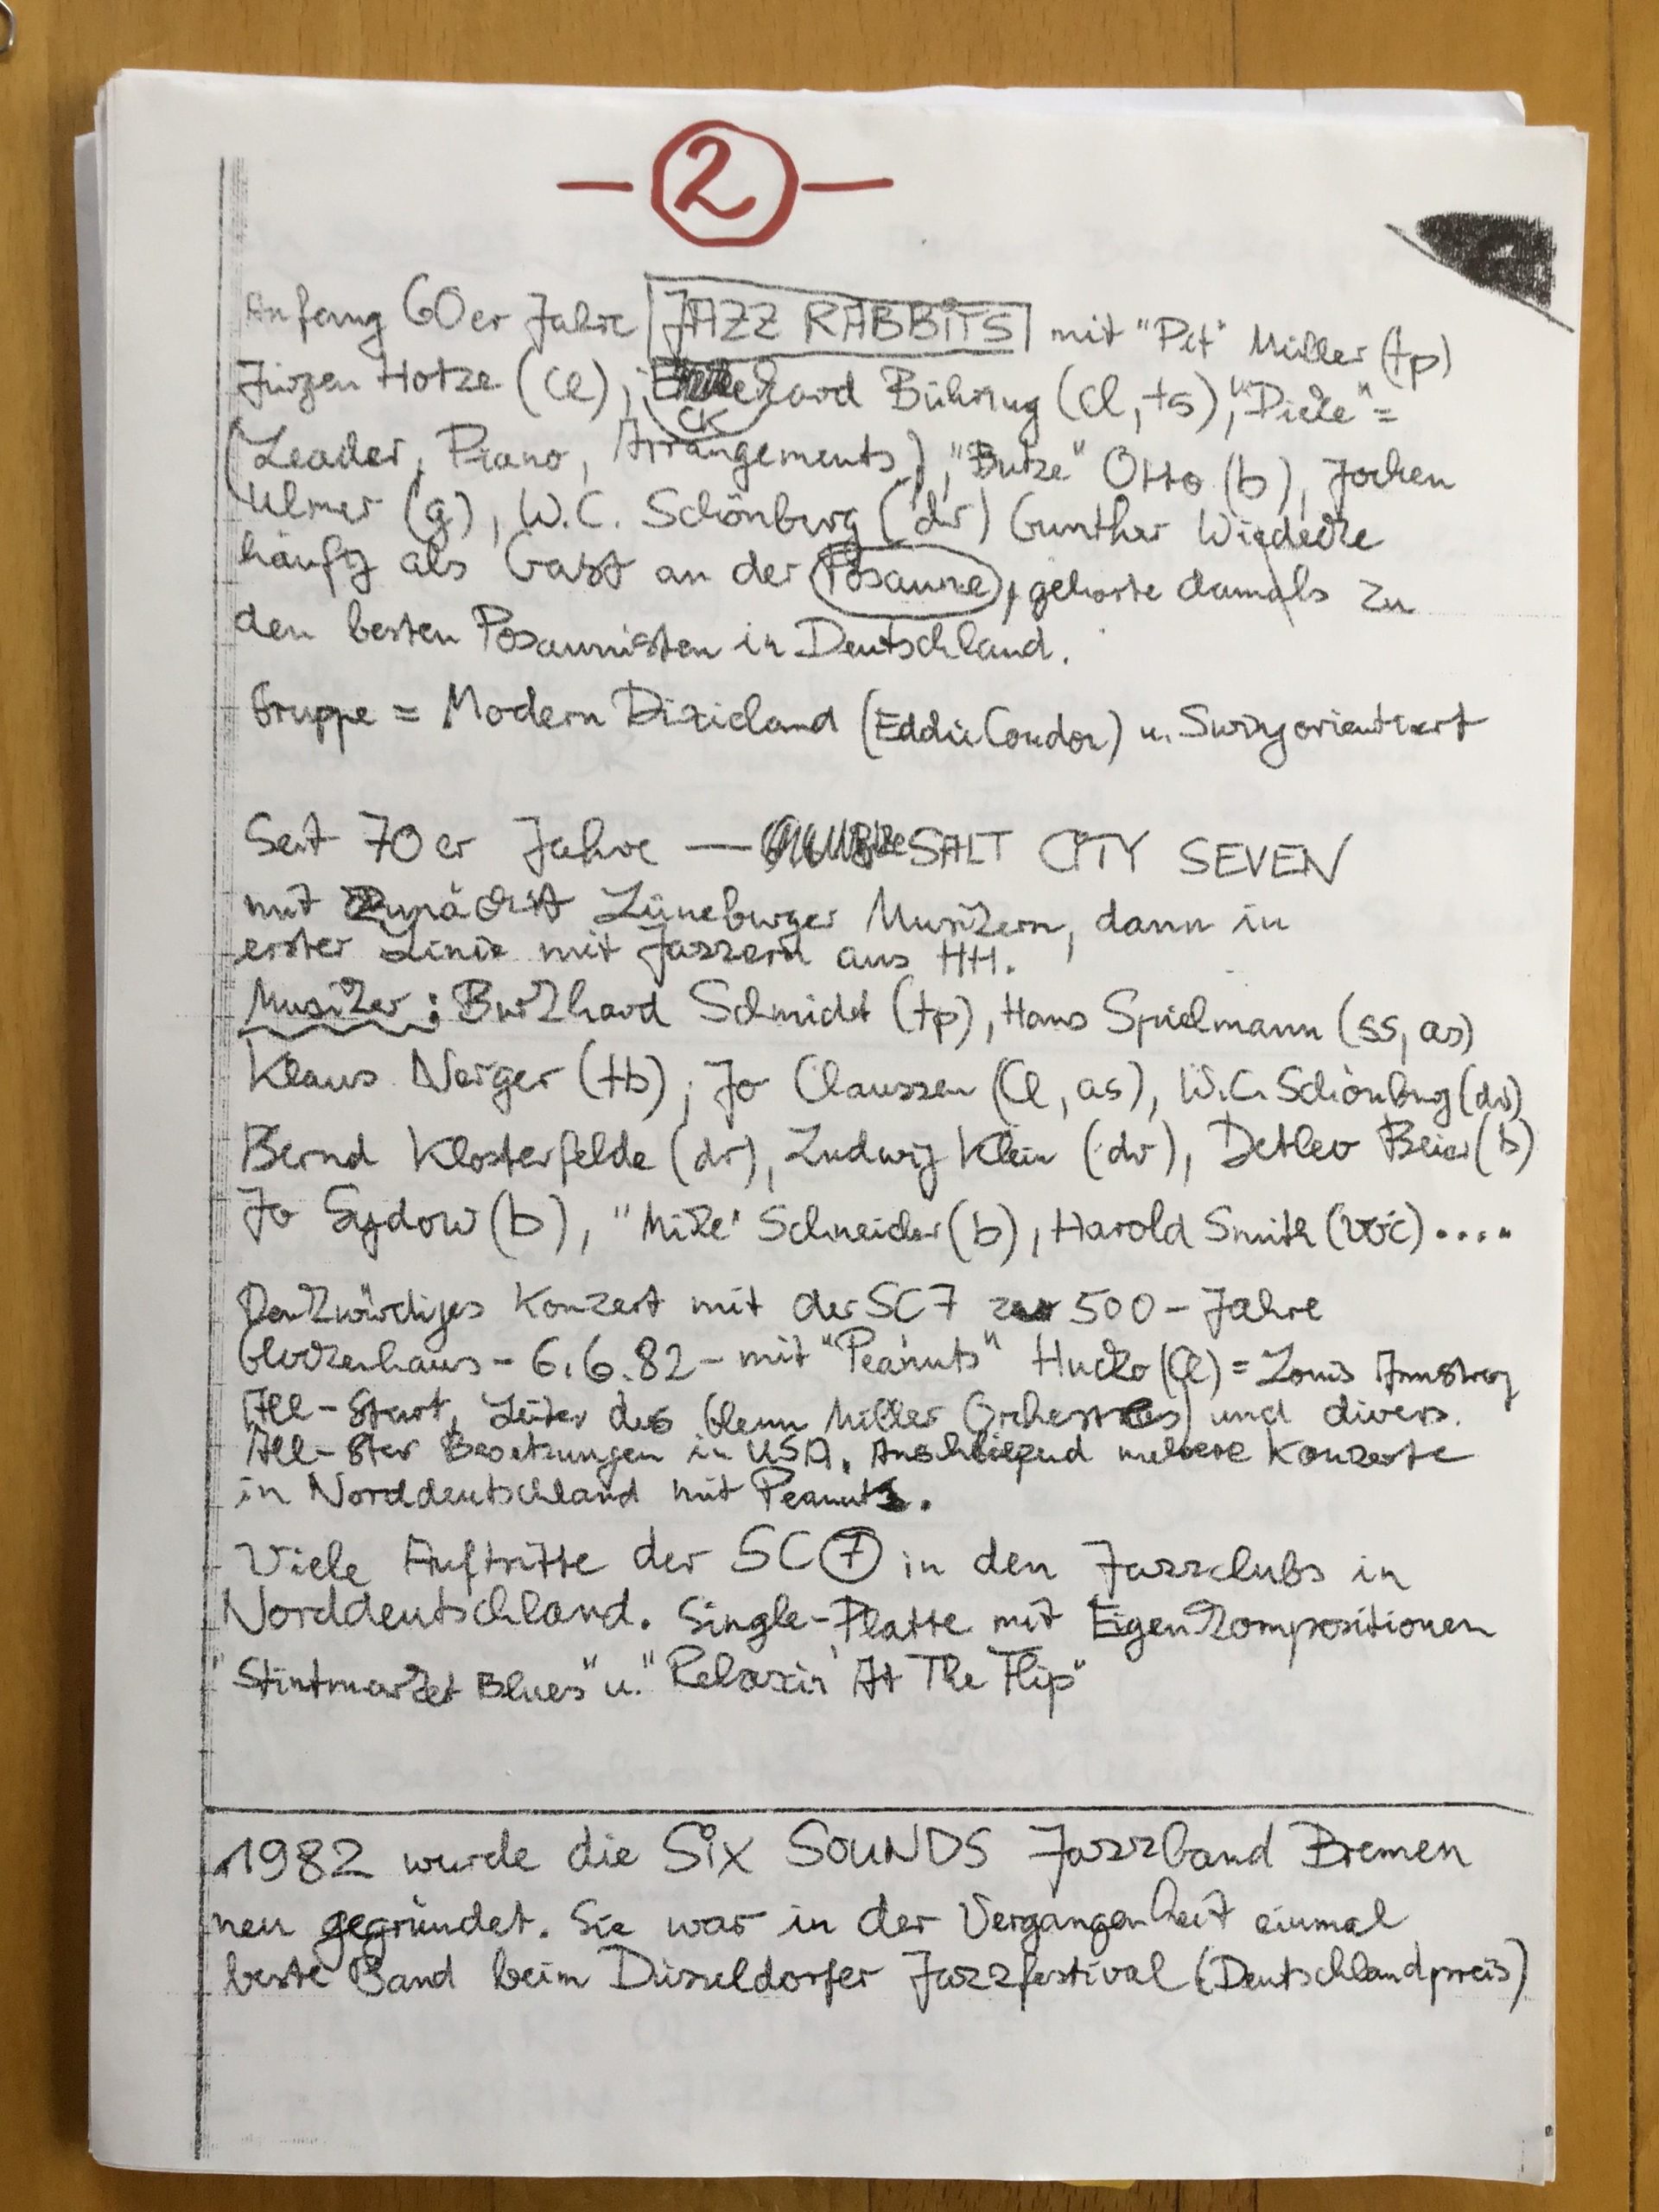 — 2 —
Anfang 60er Jahre JAZZ RABBITS mit "Pit" Müller (tp)
Jürgen Hotze (cl), Eckehard Bühring (cl, ts), "Dicke" =
(Leader, Piano, Arrangements), "Butze" Otto (b), Jochen
Ulmer (g), W.C. Schönberg (dr) Gunther Wiedecke
häufig als Gast an der Posaune, gehörte damals zu
den besten Posaunisten in Deutschland.
Gruppe = Modern Dixieland (Eddie Condon) u. Swingorientiert
Seit 70er Jahre — SALT CITY SEVEN
mit zunächst Lüneburger Musikern, dann in
erster Linie mit Jazzern aus HH.
Musiker: Burkhard Schmidt (tp), Hans Spielmann (ss, as)
Klaus Neiger (tb), Jo Claussen (cl, as), W.C. Schönbng (dr)
Bernd Klosterfelde (dr), Ludwig Klein (dr), Detlev Beier (b)
Jo Sydow (b), "Mike" Schneider (b), Harold Smith (voc) ....
Denkwürdiges Konzert mit der SC7 zur 500-Jahre
Glockenhaus - 6.6.82 - mit "Peanuts" Hucko (cl) = Louis Armstrong
All-Start, Leiter des Glenn Miller Orchestres) und divers.
All-Ster Besetzungen in USA. Anschließend mehrere Konzerte
in Norddeutschland mit Peanuts.
Viele Auftritte der SC 7 in den Jazzclubs in
Norddeutschland. Single-Platte mit Eigenkompositionen
"Stintmarket Blues" u. "Relaxin' At The Flip"
1982 wurde die SIX SOUNDS Jazzband Bremen
neu gegründet. Sie war in der Vergangenheit einmal
beste Band beim Düsseldorfer Jazzfestival (Deutschlandpreis)